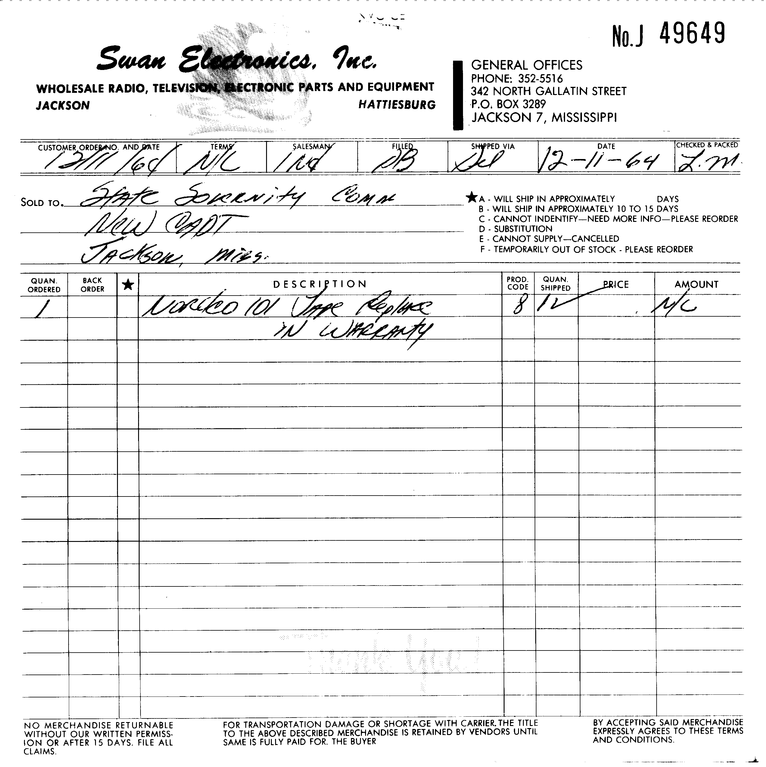 No. J 49649
Swan Electronics, Inc.
WHOLESALE RADIO, TELEVISION, ELECTRONIC PARTS AND EQUIPMENT
JACKSON HATTIESBURG
GENERAL OFFICES
PHONE: 352-5516
342 NORTH GALLATIN STREET
P.O. BOX 3289
JACKSON 7, MISSISSIPPI
CUSTOMER ORDER NO. AND DATE TERMS SALESMAN FILLED SHIPPED VIA DATE CHECKED & PACKED
12/11/64 N/C Ind DB Del 12-11-64 L.M.
SOLD TO. State Sovernity Comm
New Capt
Jackson, Miss.
★ A - WILL SHIP IN APPROXIMATELY DAYS
B - WILL SHIP IN APPROXIMATELY 10 TO 15 DAYS
C - CANNOT INDENTIFY—NEED MORE INFO—PLEASE REORDER
D - SUBSTITUTION
E - CANNOT SUPPLY—CANCELLED
F - TEMPORARILY OUT OF STOCK - PLEASE REORDER
QUAN. ORDERED BACK ORDER ★ DESCRIPTION PROD. CODE QUAN. SHIPPED PRICE AMOUNT
1 Norelco 101 Tape Replace 8 1 N/C
IN WARRANTY
Thank You!
NO MERCHANDISE RETURNABLE
WITHOUT OUR WRITTEN PERMISS-
ION OR AFTER 15 DAYS. FILE ALL
CLAIMS.
FOR TRANSPORTATION DAMAGE OR SHORTAGE WITH CARRIER. THE TITLE
TO THE ABOVE DESCRIBED MERCHANDISE IS RETAINED BY VENDORS UNTIL
SAME IS FULLY PAID FOR. THE BUYER
BY ACCEPTING SAID MERCHANDISE
EXPRESSLY AGREES TO THESE TERMS
AND CONDITIONS.